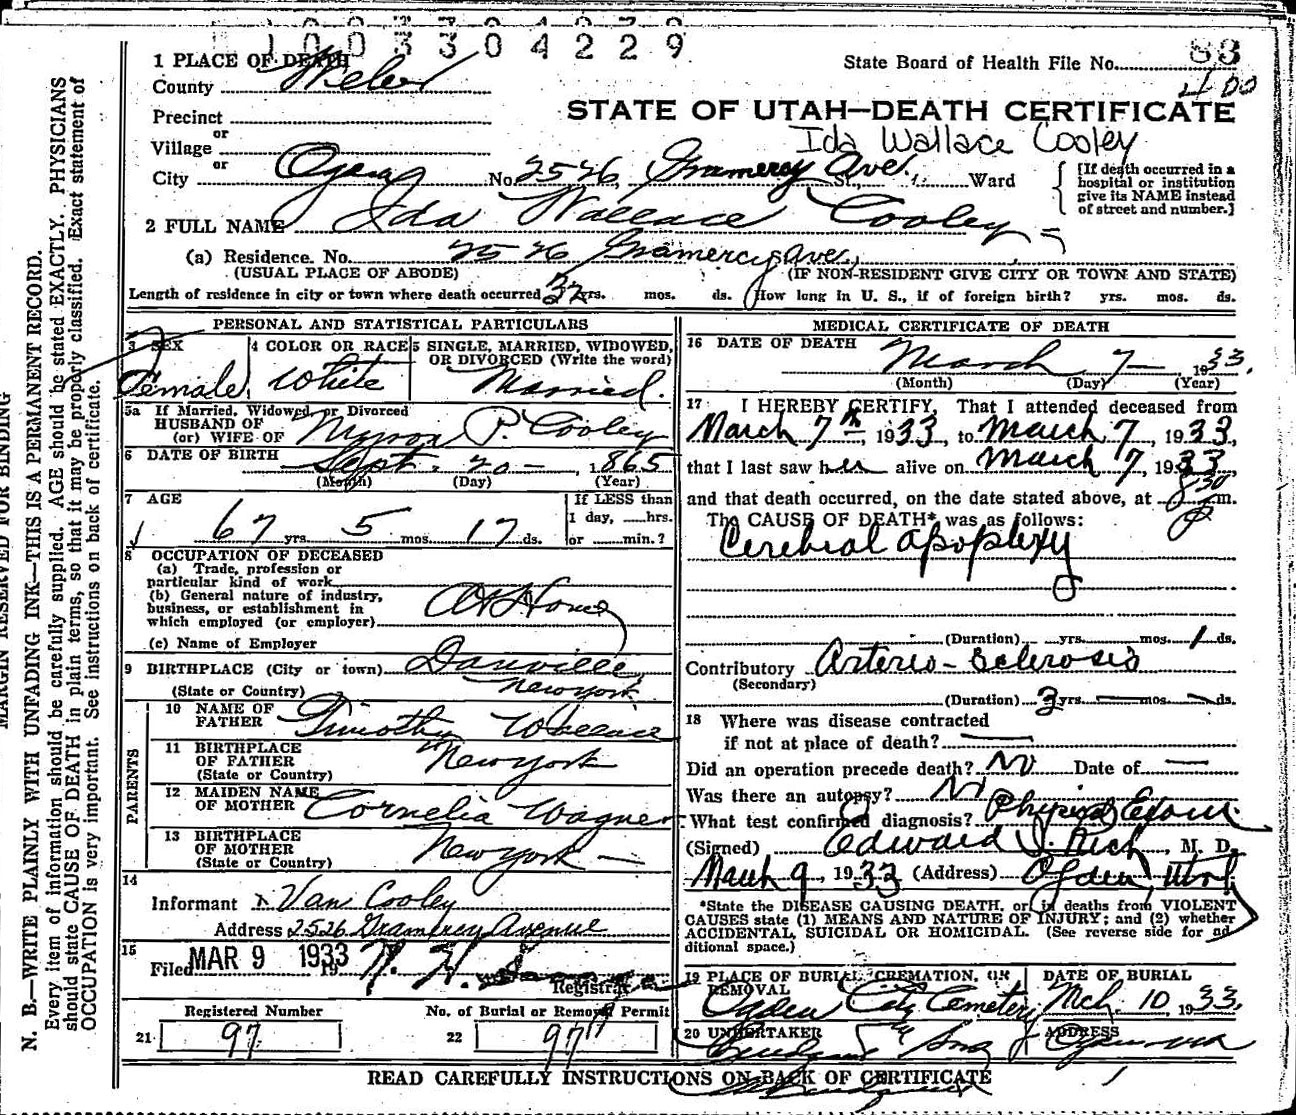 1 0 0 3 3 0 4 2 2 9
83
1 PLACE OF DEATH
State Board of Health File No.
400
County Weber
STATE OF UTAH—DEATH CERTIFICATE
Precinct
or
Ida Wallace Cooley
Village
or
City Ogden No. 2526 Gramercy Ave. St., Ward
[If death occurred in a hospital or institution give its NAME instead of street and number.]
2 FULL NAME Ida Wallace Cooley
(a) Residence. No. 2526 Gramercy Ave.,
(USUAL PLACE OF ABODE) (IF NON-RESIDENT GIVE CITY OR TOWN AND STATE)
Length of residence in city or town where death occurred 32 yrs. mos. ds. How long in U. S., if of foreign birth? yrs. mos. ds.
PERSONAL AND STATISTICAL PARTICULARS
3 SEX
Female
4 COLOR OR RACE
White
5 SINGLE, MARRIED, WIDOWED, OR DIVORCED (Write the word)
Married.
5a If Married, Widowed, or Divorced
HUSBAND OF
(or) WIFE OF Myron P. Cooley
6 DATE OF BIRTH Sept. 20 – , 1865
(Month) (Day) (Year)
7 AGE
67 yrs. 5 mos. 17 ds.
If LESS than
1 day, hrs.
or min.?
8 OCCUPATION OF DECEASED
(a) Trade, profession or
particular kind of work
(b) General nature of industry,
business, or establishment in
which employed (or employer)
At Home
(c) Name of Employer
9 BIRTHPLACE (City or town) Dansville,
(State or Country) New York
PARENTS
10 NAME OF FATHER Timothy Wallace
11 BIRTHPLACE OF FATHER (State or Country) New York
12 MAIDEN NAME OF MOTHER Cornelia Wagner
13 BIRTHPLACE OF MOTHER (State or Country) New York —
14
Informant Van Cooley
Address 2526 Gramercy Avenue
15
Filed MAR 9 1933 19
Registrar
Registered Number
21 97
No. of Burial or Removal Permit
22 97
MEDICAL CERTIFICATE OF DEATH
16 DATE OF DEATH
March 7 — , 1933.
(Month) (Day) (Year)
17 I HEREBY CERTIFY, That I attended deceased from
March 7th, 1933, to March 7, 1933,
that I last saw her alive on March 7, 1933,
and that death occurred, on the date stated above, at 8 30 P m.
The CAUSE OF DEATH* was as follows:
Cerebral apoplexy
(Duration) yrs. mos. 1 ds.
Contributory Arterio-Sclerosis
(Secondary)
(Duration) 3 yrs. — mos. — ds.
18 Where was disease contracted
if not at place of death? —
Did an operation precede death? No Date of —
Was there an autopsy? No
What test confirmed diagnosis? Physical Exam
(Signed) Edward I. Rich, M. D.
March 9, 1933 (Address) Ogden, Utah
*State the DISEASE CAUSING DEATH, or in deaths from VIOLENT
CAUSES state (1) MEANS AND NATURE OF INJURY; and (2) whether
ACCIDENTAL, SUICIDAL OR HOMICIDAL. (See reverse side for ad
ditional space.)
19 PLACE OF BURIAL, CREMATION, OR REMOVAL
Ogden City Cemetery
DATE OF BURIAL
Mch. 10, 1933.
20 UNDERTAKER
ADDRESS
READ CAREFULLY INSTRUCTIONS ON BACK OF CERTIFICATE
MARGIN RESERVED FOR BINDING
N. B.—WRITE PLAINLY WITH UNFADING INK—THIS IS A PERMANENT RECORD.
Every item of information should be carefully supplied. AGE should be stated EXACTLY. PHYSICIANS
should state CAUSE OF DEATH in plain terms, so that it may be properly classified. Exact statement of
OCCUPATION is very important. See instructions on back of certificate.